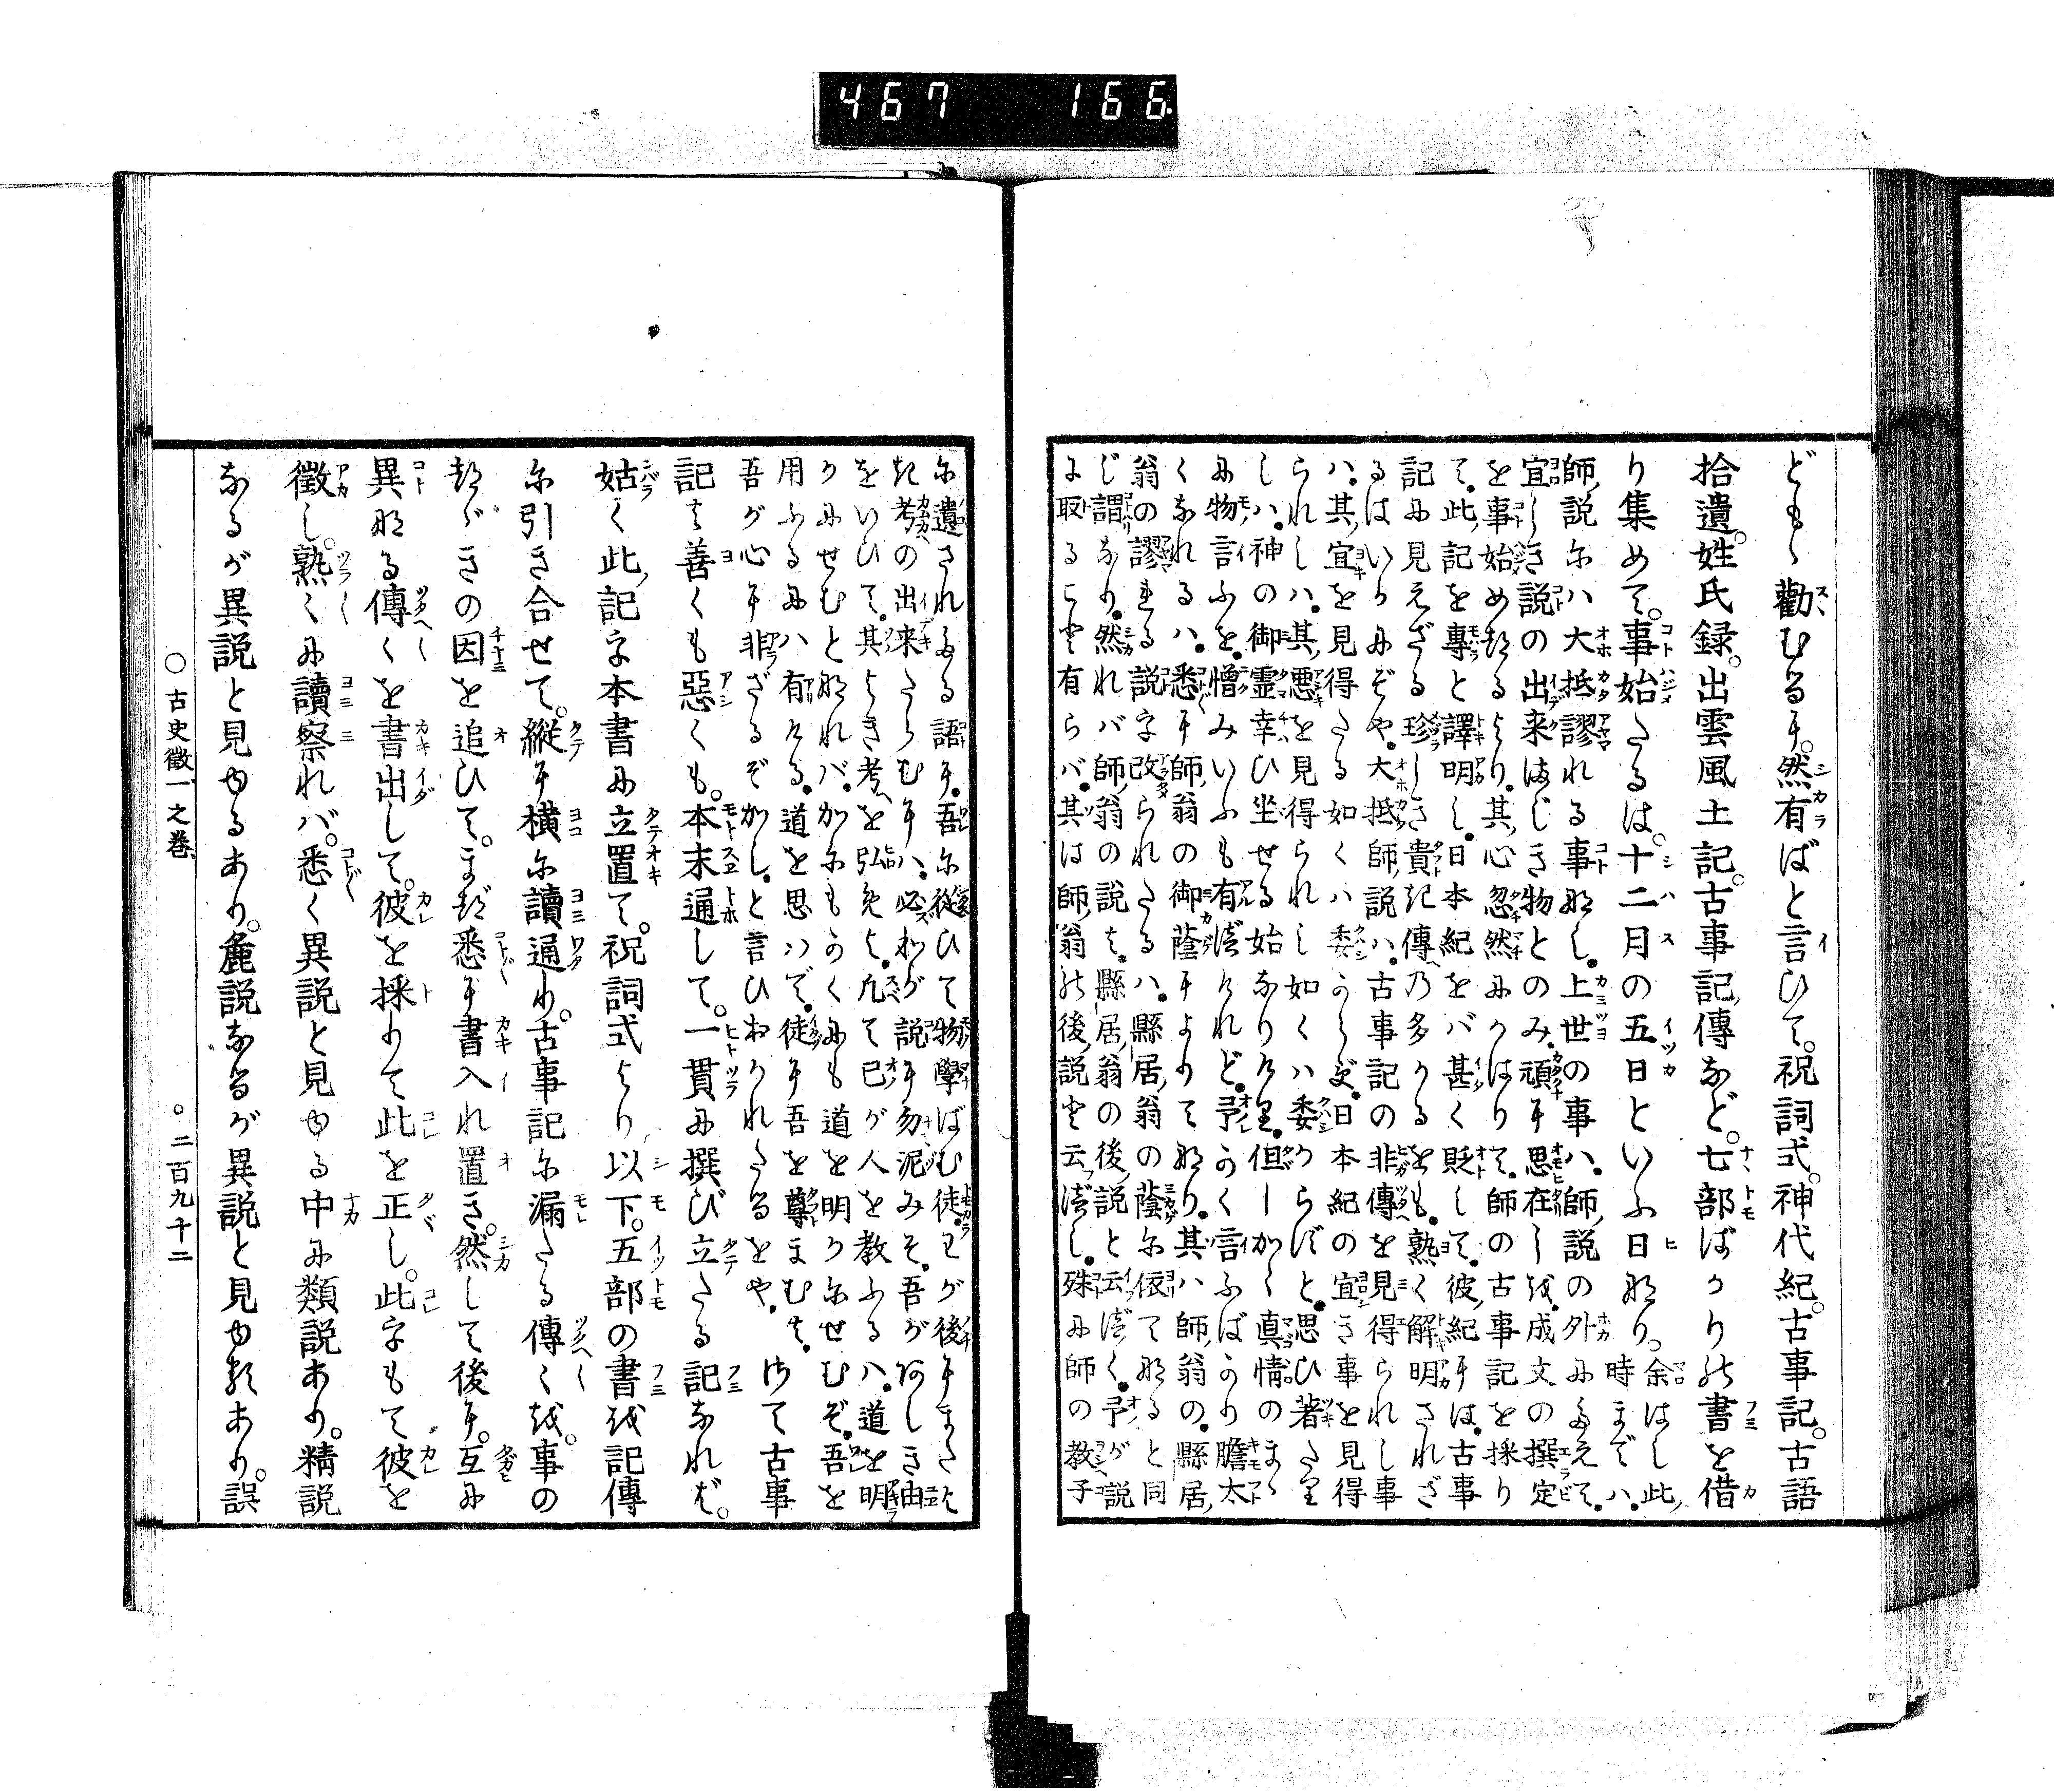 467 166
ども勸むるに。然有ばと言ひて。祝詞式。神代紀。古事記。古語
拾遺。姓氏録。出雲風土記。古事記傳など。七部ばかりの書を借
り集めて。事始たるは。十二月の五日といふ日なり。余はし此時までハ、
師説にハ大抵謬れる事なし。上世の事ハ、師説の外にたえて、
宜しき説の出来まじき物とのみ、頑に思在しを、成文の撰定
を事始め給るより、其心忽然にかはりて、師の古事記を採り
て、此記を專と譯明し、日本紀をバ甚く貶して、彼紀には、古事
記に見えざる珍しき貴き傳乃多かるをも、熟く解明されざ
るはいかにぞや、大抵師説ハ、古事記の非傳を見得られし事
ハ、其宜を見得たる如くハ委からず、日本紀の宜き事を見得
られしハ、其惡を見得られし如くハ委からずと、思ひ著たり
しハ、神の御霊幸ひ坐せる始なりけり、但しかく真情のまゝ
に物言ふを、憎みいふも有べけれど、予かく言ふばかり膽太
くなれるハ、悉に師翁の御蔭によりてなり、其ハ師翁の、縣居
翁の謬れる説字改られたるハ、縣居翁の蔭に依てなると同
じ謂なり、然れバ師翁の説を、縣居翁の後説と云べく、予が説
に取ること有らバ、其は師翁の後説と云べし、殊に師の教子
に遺されたる語に、吾に從ひて物學ばむ徒、わが後にまたよ
き考の出来たらむにハ、必わが説に勿泥みそ、吾があしき由
をいひて、其よき考を弘めよ、凡て己が人を教ふるハ、道を明
かにせむとなれバ、かにもかくにも道を明かにせむぞ、吾を
用ふるにハ有ける、道を思ハで、徒に吾を尊まむは、
吾が心に非ざるぞかし、と言ひおかれたるをや、 けて古事
記は善くも惡くも。本末通して。一貫に撰び立たる記なれば。
姑く此記字本書に立置て。祝詞式より以下。五部の書を記傳
に引き合せて。縱に横に讀通り。古事記に漏たる傳々を。事の
都ゞきの因を追ひて。まづ悉に書入れ置き。然して後に。互に
異なる傳々を書出して。彼を採りて此を正し。此字もて彼を
徴し。熟々に讀察れバ。悉く異説と見ゆる中に類説あり。精説
なるが異説と見ゆるあり。麁説なるが異説と見ゆるあり。誤
○古史徴一之巻 ○二百九十二